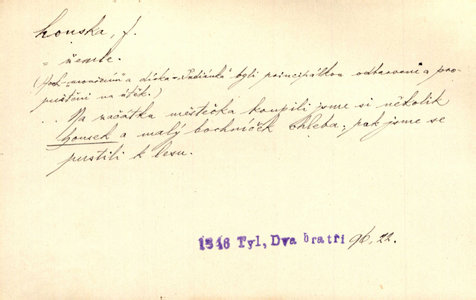 houska, f.
= žemle.
a dívka byli principálkou odbaveni a pro-
puštěni na útěk.)
.. Na začátku městečka koupili jsme si několik
housek a malý bochníček chleba, pak jsme se
pustili k lesu.
1846 Tyl, Dva bratři 96, 22.